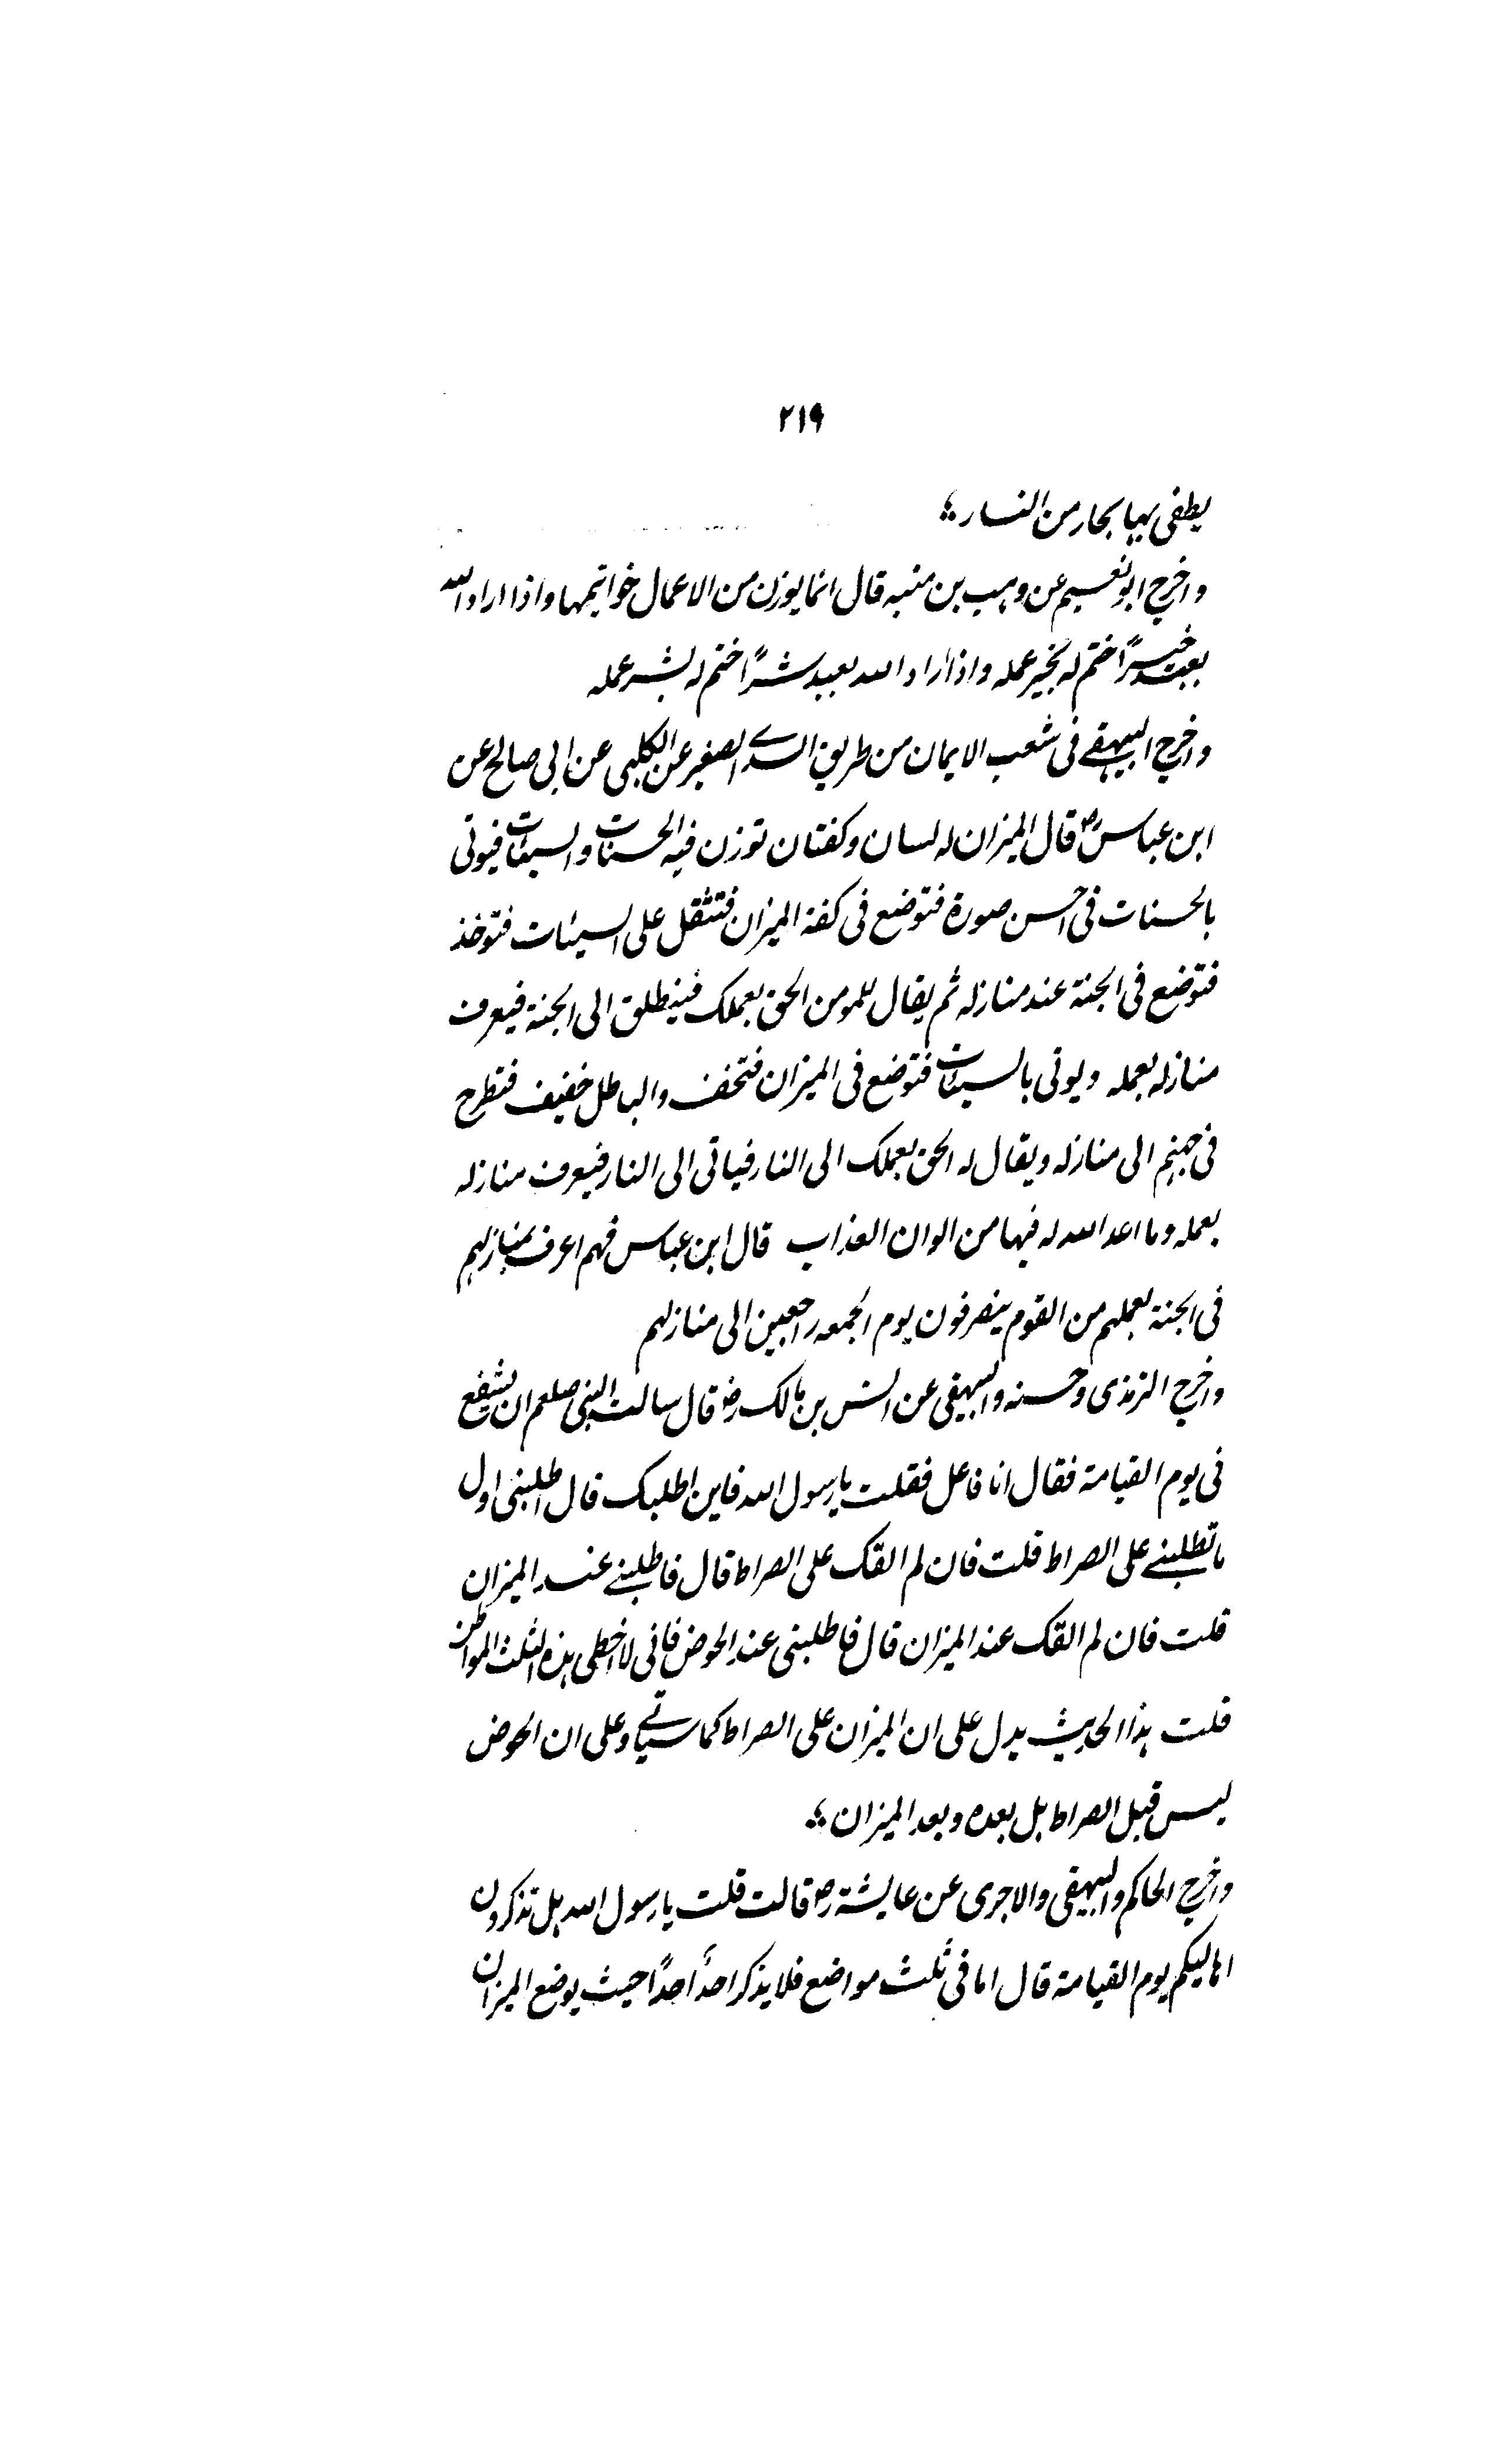 ۲۱۹
یطفی بہا بحار من النار؛
واخرج ابو نعیم عن وہب بن منبہ قال انما یوزن من الاعمال خواتیمہا واذا اراد اللہ
بعبد خیرًا ختم لہ بخیر عملہ واذا اراد اللہ بعبد شرًا ختم لہ بشر عملہ
واخرج البیہقے فی شعب الایمان من طریق السدے الصغیر عن الکلبی عن ابی صالح عن
ابن عباسؓ قال المیزان لہ لسان وکفتان توزن فیہ الحسنات والسیئات فیوتی
بالحسنات فی احسن صورۃ فتوضع فی کفۃ المیزان فتثقل علی السیئات فتوخذ
فتوضع فی الجنۃ عند منازلہ ثم یقال للمومن الحق بعملک فینطلق الی الجنۃ فیعرف
منازلہ بعملہ ویوتی بالسیئات فتوضع فی المیزان فتخف والباطل خفیف فتطرح
فی جہنم الی منازلہ ویقال لہ الحق بعملک الی النار فیاتی الی النار فیعرف منازلہ
بعملہ وما اعد اللہ لہ فیہا من الوان العذاب قال ابن عباس فہم اعرف بمنازلہم
فی الجنۃ بعملہم من القوم ینصرفون یوم الجمعہ راجعین الی منازلہم
واخرج الترمذی وحسنہ والبیہقی عن انس بن مالک رض قال سالت النبی صلعم ان یشفع
فی یوم القیامۃ فقال انا فاعل فقلت یا رسول اللہ فاین اطلبک قال اطلبنی اول
ما تطلبنے علی الصراط قلت فان لم القک علی الصراط قال فاطلبنے عند المیزان
قلت فان لم القک عند المیزان قال فاطلبنی عند الحوض فانی لا اخطی ہذہ الثلث المواطن
قلت ہذا الحدیث یدل علی ان المیزان علی الصراط کما سیاتے وعلی ان الحوض
لیس قبل الصراط بل بعدہ وبعد المیزان؛
واخرج الحاکم والبیہقی والاجری عن عایشۃ رض قالت قلت یا رسول اللہ ہل تذکرون
اہالیکم یوم القیامۃ قال اما فی ثلث مواضع فلا یذکر احدٌ احدًا حیث یوضع المیزان